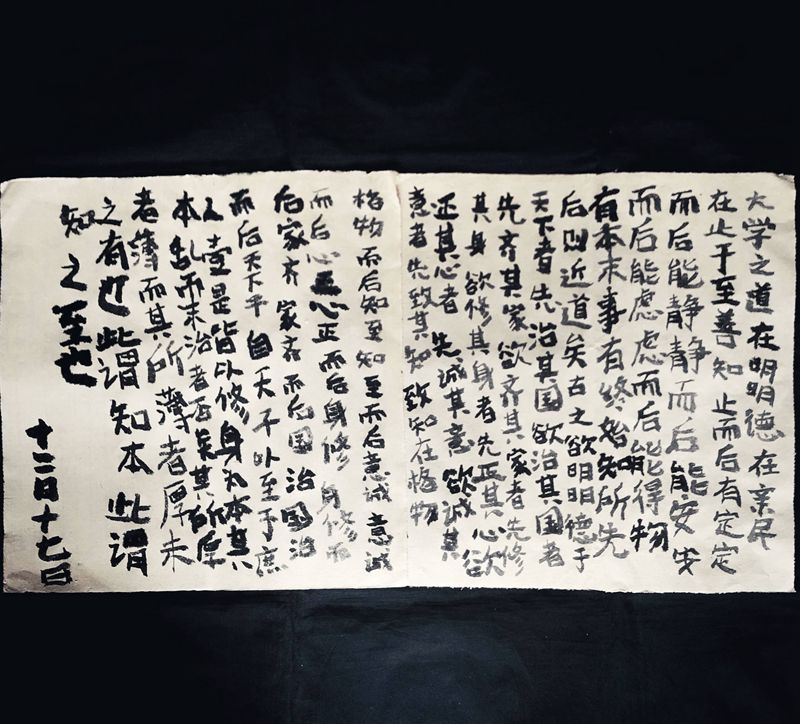 大学之道在明明德在亲民
在止于至善知止而后有定定
而后能静静而后能安安
而后能虑虑而后能得物
有本末事有终始知所先
后则近道矣古之欲明明德于
天下者先治其国欲治其国者
先齐其家欲齐其家者先修
其身欲修其身者先正其心欲
正其心者先诚其意欲诚其
意者先致其知致知在格物
格物而后知至知至而后意诚意诚
而后心正心正而后身修身修而
后家齐家齐而后国治国治
而后天下平自天子以至于庶
人壹是皆以修身为本其
本乱而末治者否矣其所厚
者薄而其所薄者厚未
之有也此谓知本此谓
知之至也
十二月十七日